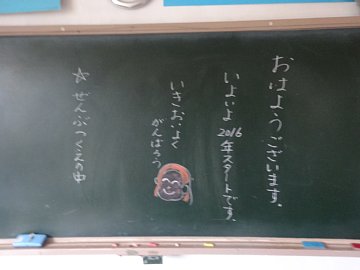 おはようございます。
いよいよ2016年スタートです。
いきおいよく
がんばろう
☆ぜんぶつくえの中